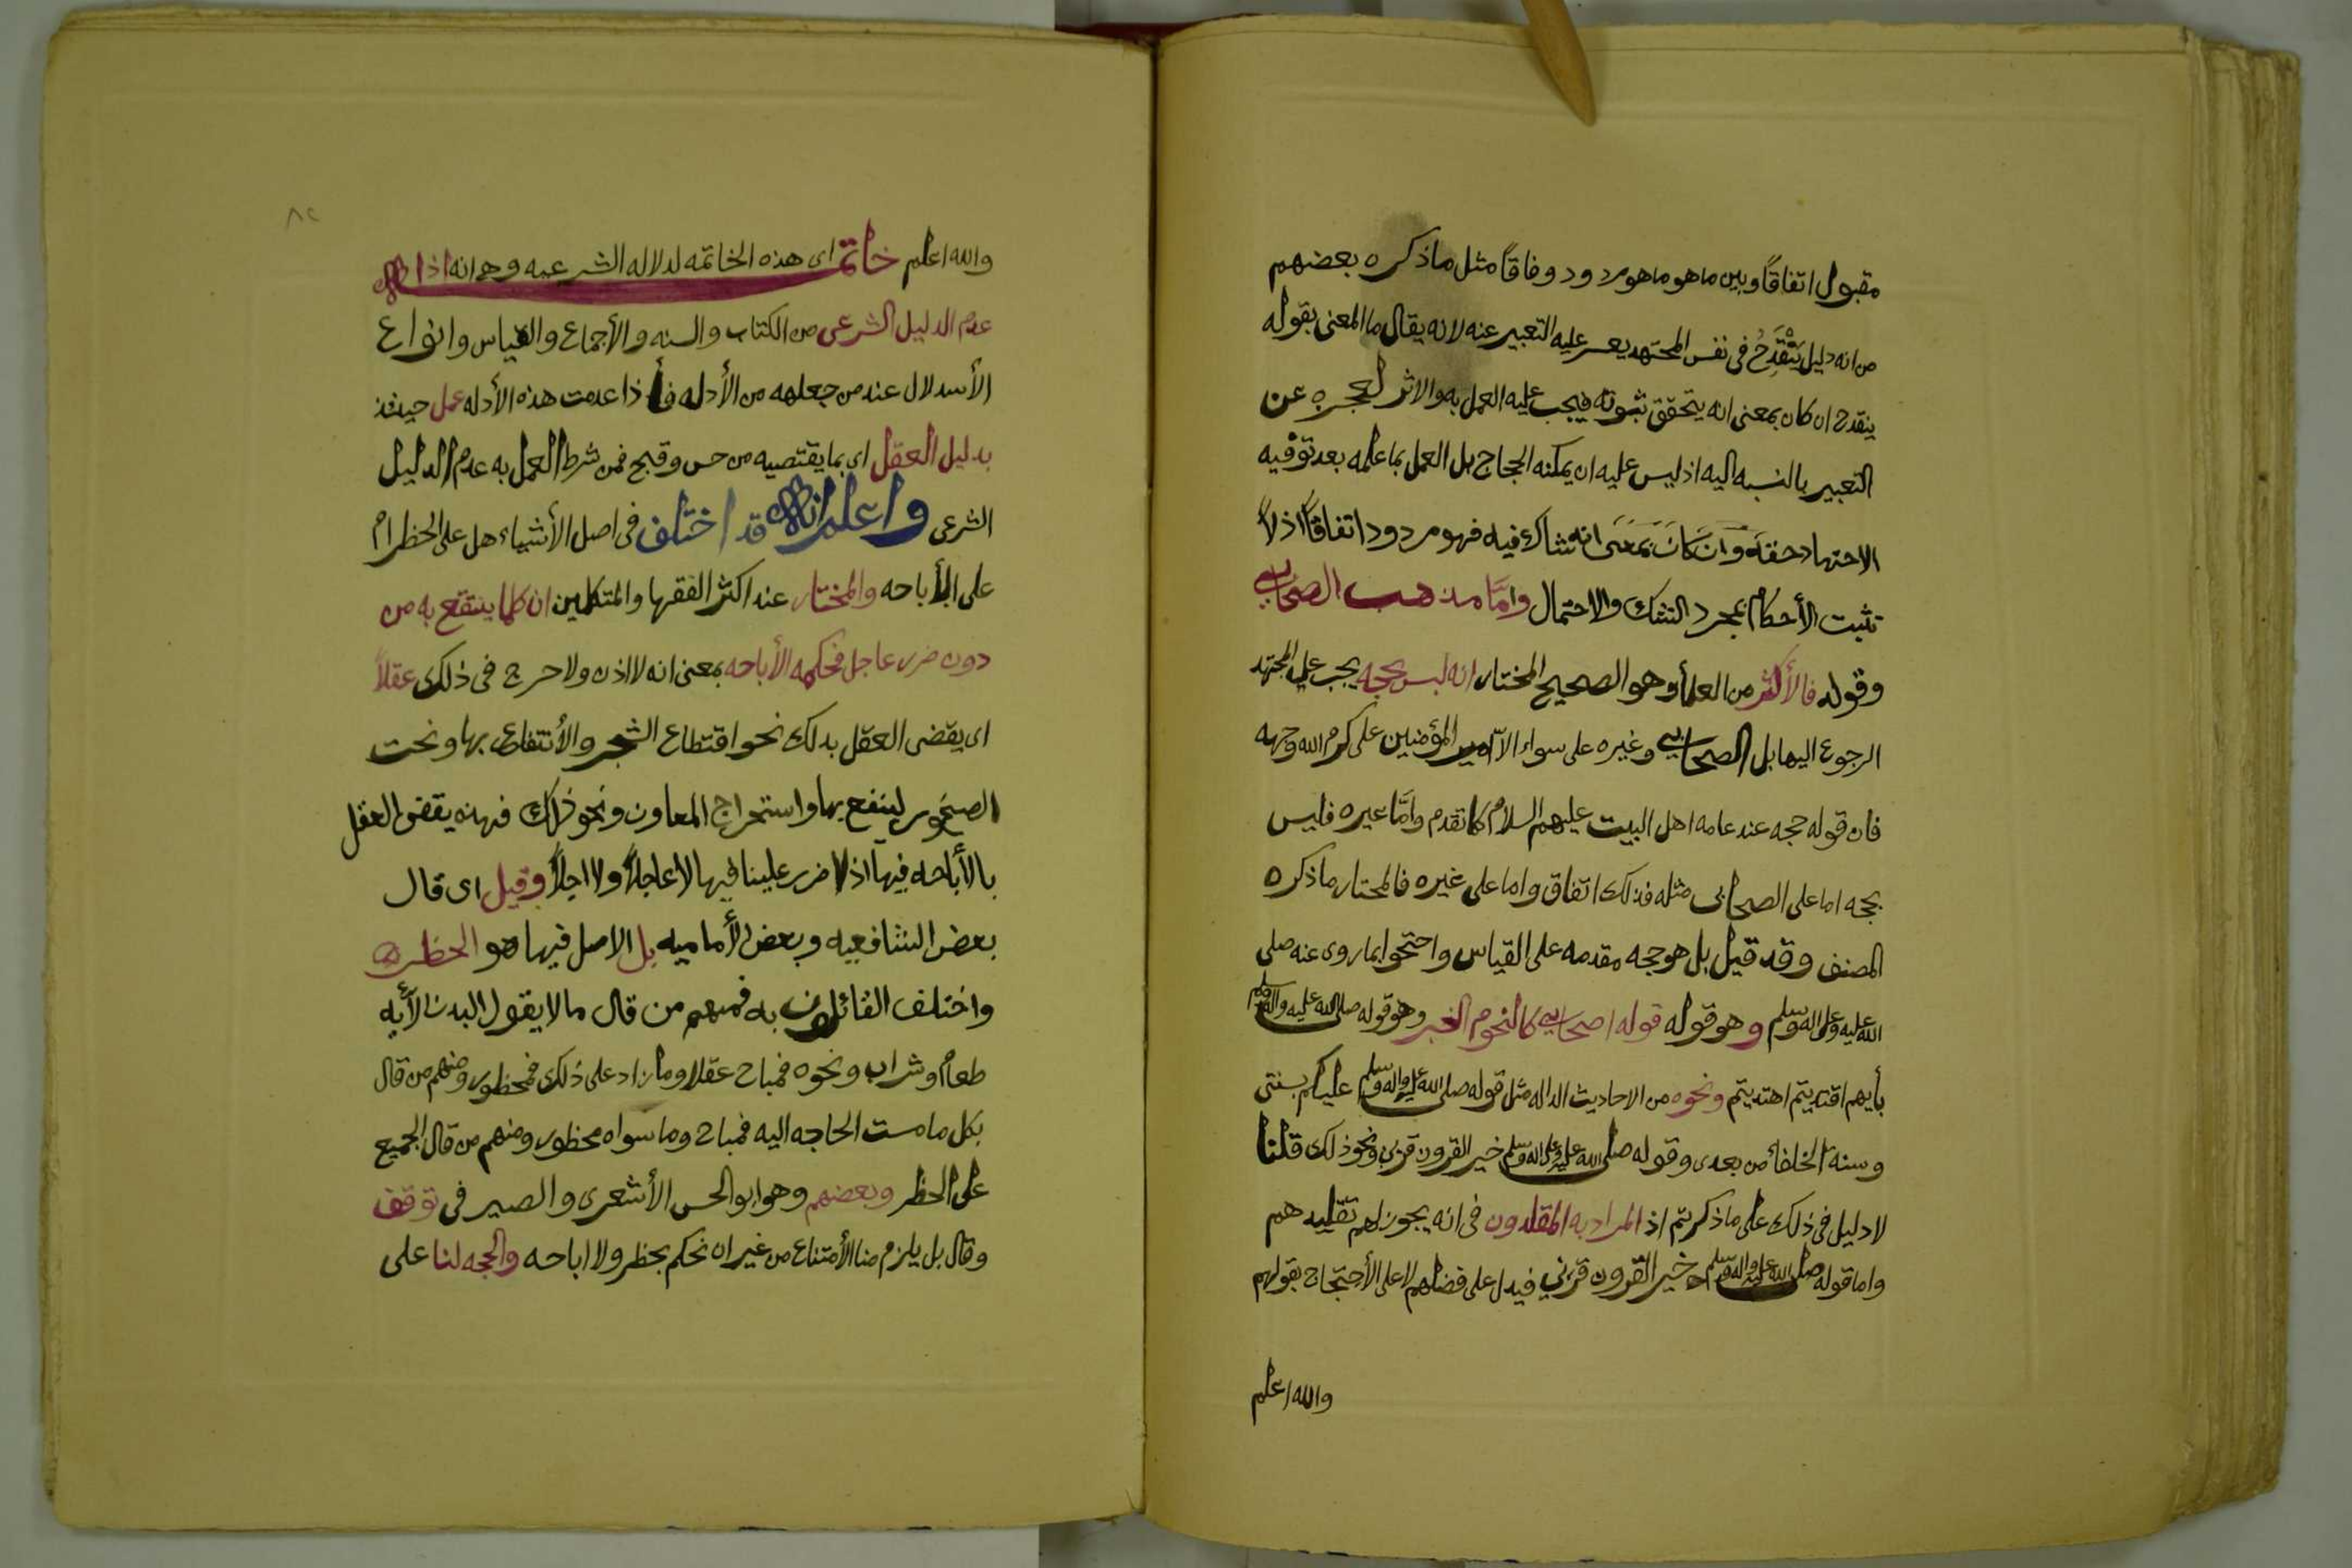 مقبول اتفاقاً وبين ما هو ما هو مردود وفاقاً مثل ما ذكره بعضهم
من انه دليل يَنْقَدِحُ في نفس المجتهد يعسر عليه التعبير عنه لانه يقال ما المعنى بقوله
ينقدح ان كان بمعنى انه يتحقق ثبوته فيجب عليه العمل به والاثر لعجزه عن
التعبير بالنسبه اليه اذ ليس عليه ان يمكنه الحجاج بل العمل بما علمه بعد توفيه
الاجتهاد حقه وان كان بمعنى انه شاك فيه فهو مردود اتفاقاً اذ لا
تثبت الأحكام بمجرد الشك والاحتمال وامَّا مذهب الصحابي
وقوله فالأكثر من العلمأ وهو الصحيح المختار انه ليس بحجه يجب على المجتهد
الرجوع اليها بل الصحابي وغيره على سواء الا امير المؤمنين علي كرم الله وجهه
فان قوله حجه عند عامه اهل البيت عليهم السلام كما تقدم وامَّا غيره فليس
بحجه اما على الصحابي مثله فذلك اتفاق واما على غيره فالمختار ما ذكره
المصنف وقد قيل بل هو حجه مقدمه على القياس واحتجوا بما روى عنه صلى
الله عليه وعلى اله وسلم وهو قوله قوله اصحابي كالنجوم الخبر وهو قوله صلى الله عليه واله وسلم
بأيهم اقتديتم اهتديتم ونحوه من الاحاديث الداله مثل قوله صلى الله عليه واله وسلم عليكم بسنتي
وسنه الخلفاء من بعدى وقوله صلى الله عليه وعلى اله وسلم خير القرون قرني ونحو ذلك قلنا
لا دليل في ذلك على ما ذكرتم اذ المراد به المقلدون في انه يجوز لهم تقليدهم
واما قوله صلى الله عليه واله وسلم خير القرون قرني فيدل على فضلهم لا على الأحتجاج بقولهم
والله اعلم
والله اعلم خاتمه اى هذه الخاتمه لدلاله الشرعيه وهى انه اذا
عدم الدليل الشرعي من الكتاب والسنه والأجماع والقياس وانواع
الأسدلال عند من جعله من الأدله فأذا عدمت هذه الأدله عمل حينئذ
بدليل العقل اى بما يقتضيه من حسن وقبح فمن شرط العمل به عدم الدليل
الشرعي واعلم انه قد اختلف في اصل الأشياء هل على الحظر ام
على الأباحه والمختار عند اكثر الفقها والمتكلمين ان كلما ينتفع به من
دون ضرر عاجل فحكمه الأباحه بمعنى انه لا اذن ولا حرج في ذلك عقلاً
اى يقضى العقل بذلك نحو اقتطاع الشجر والأنتفاع بها ونحت
الصخور لينفع بها واستخراج المعاون ونحو ذلك فهذه يقضى العقل
بالأباحه فيها اذ لا ضرر علينا فيها لا عاجلاً ولا اجلاً وقيل اى قال
بعض الشافعيه وبعض الأماميه بل الاصل فيها هو الحظر
واختلف القائلون به فمنهم من قال ما لا يقول البدن الأ به
طعام وشراب ونحوه فمباح عقلا وما زاد على ذلك فمحظور ومنهم من قال
بكل ما مست الحاجه اليه فمباح وما سواه محظور ومنهم من قال الجميع
على الحظر وبعضهم وهو ابو الحسن الأشعرى والصيرفى توقف
وقال بل يلزم منا الأمتناع من غير ان نحكم بحظر ولا اباحه والحجه لنا على